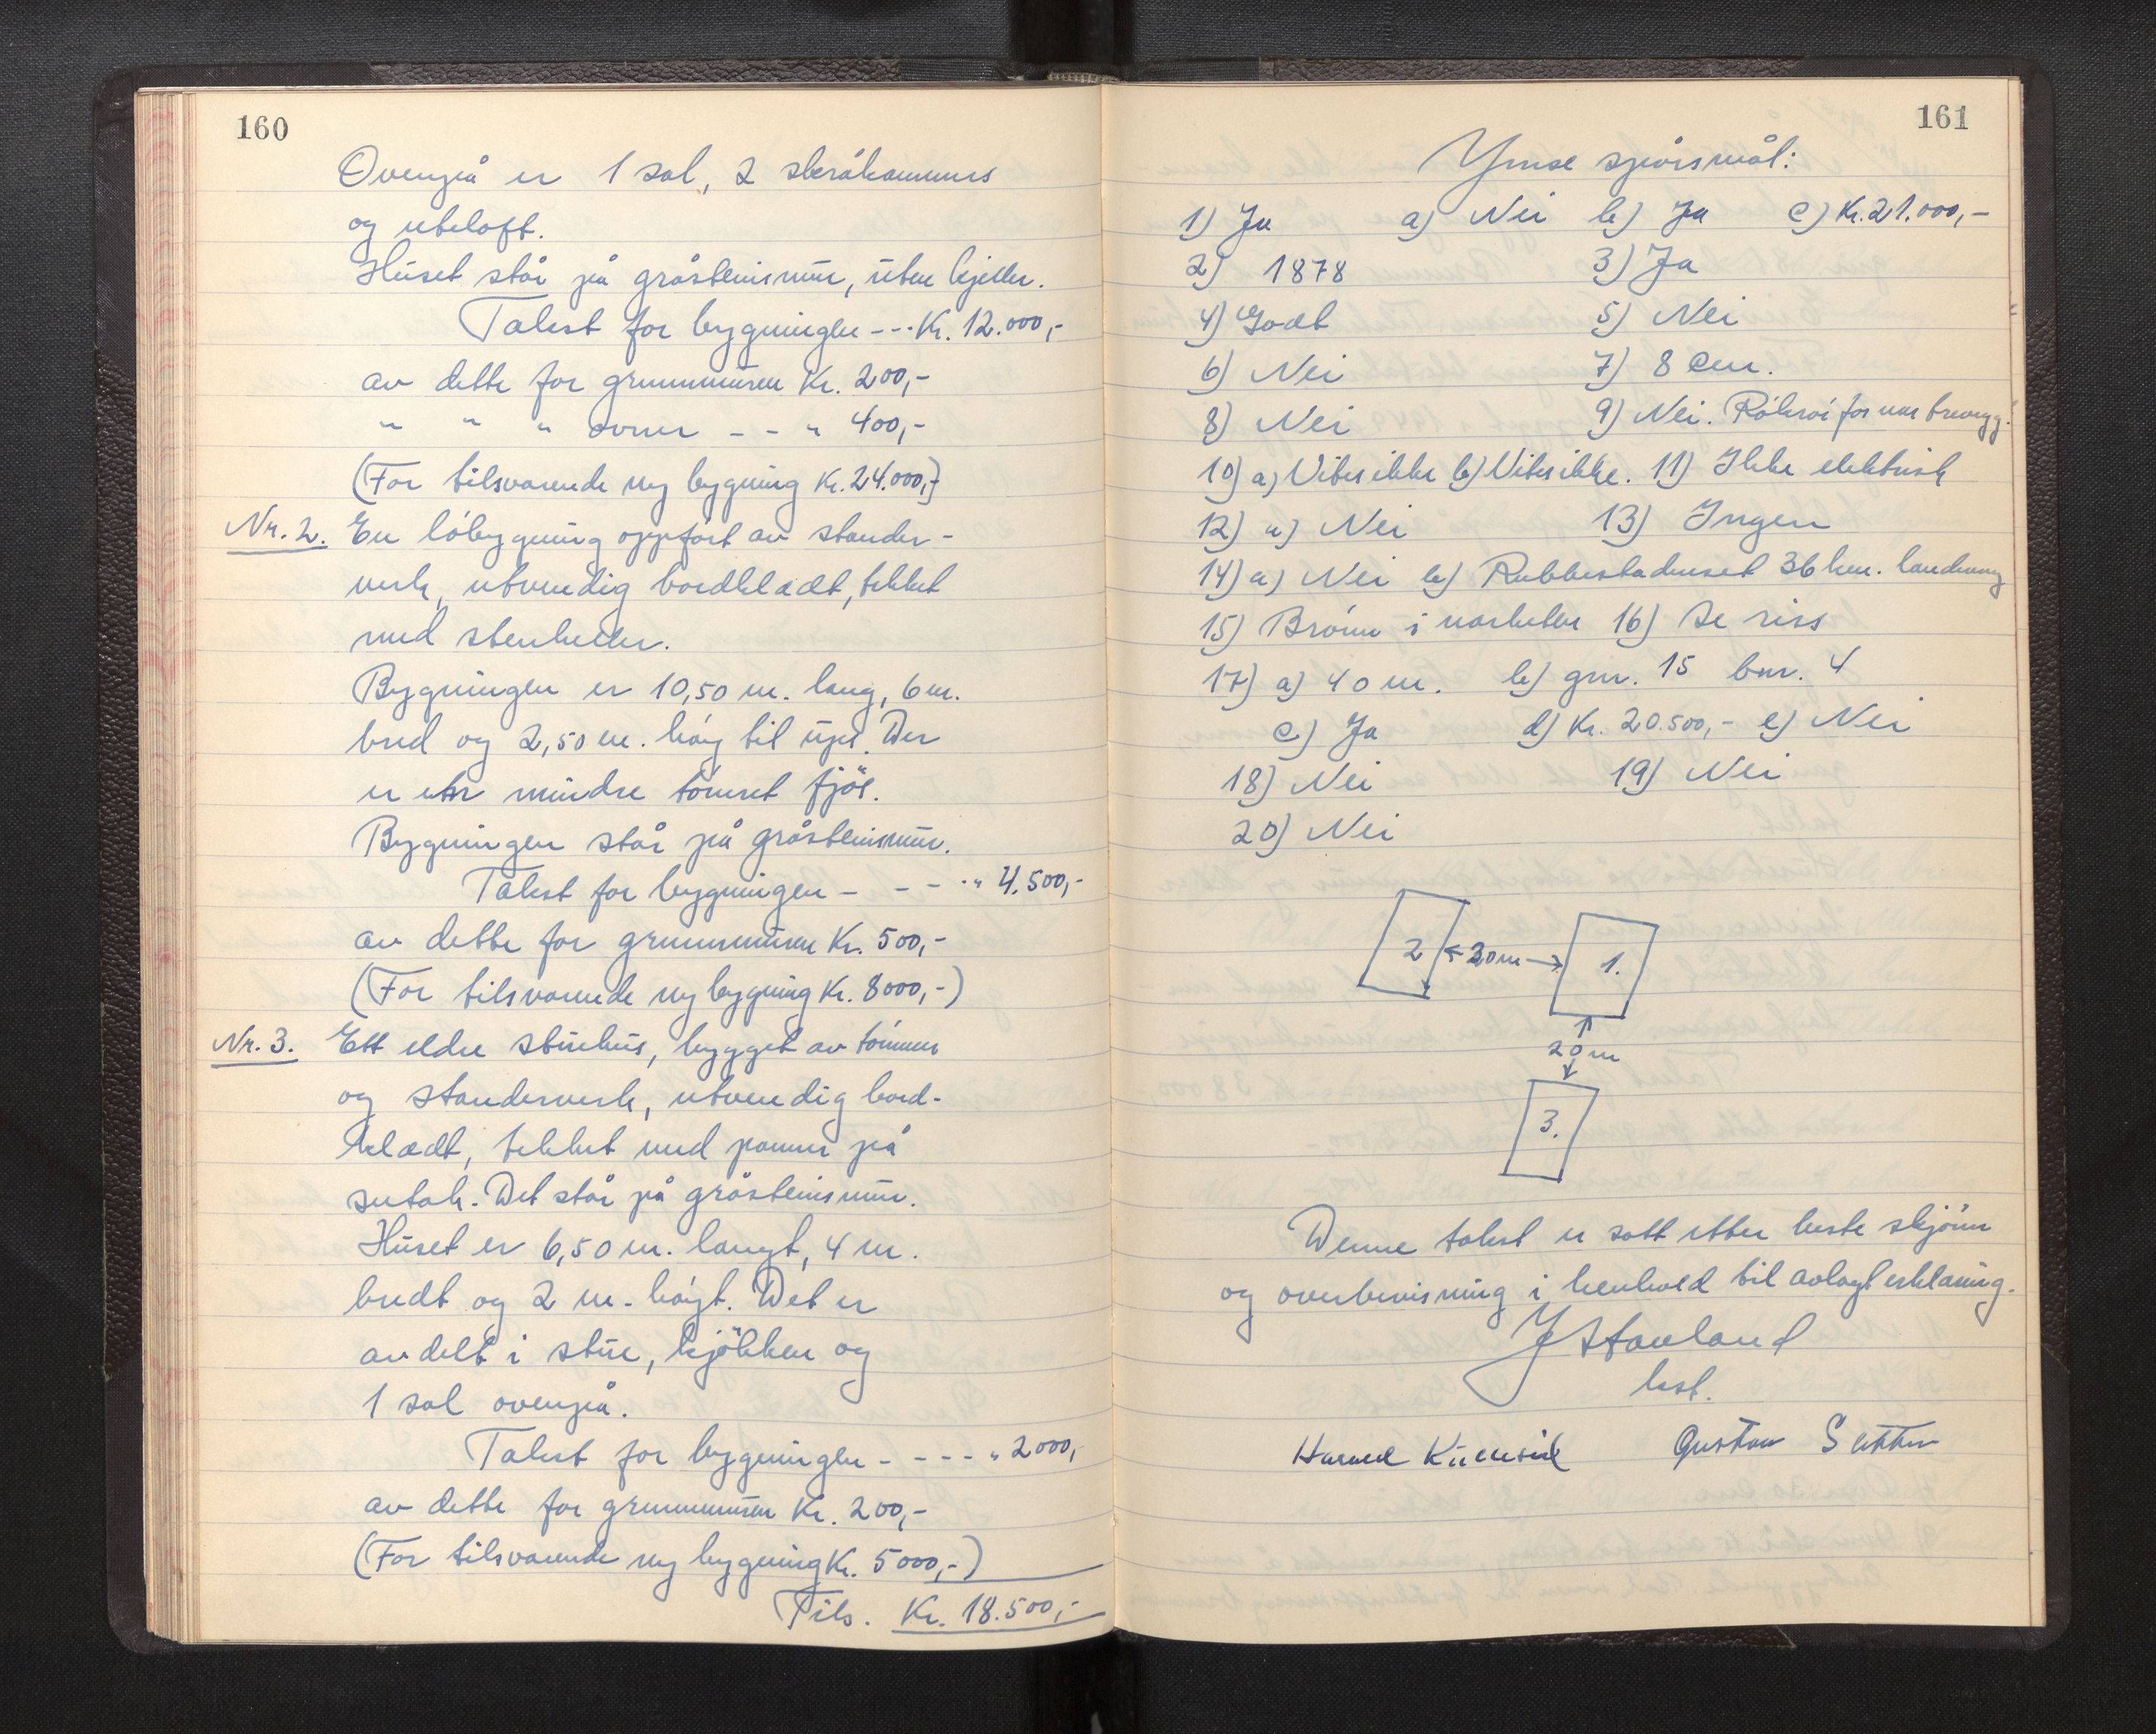 160
Ovenpå er 1 sal, 2 skråkammers
og uteloft.
Huset står på gråsteinsmur, uten kjeller.
Takst for bygningen --- Kr. 12.000,-
av dette for grunnmuren Kr. 200,-
" " " ovner - - " 400,-
(For tilsvarende ny bygning Kr. 24.000,-)
Nr. 2. En löbygning oppført av stander-
verk, utvendig bordkledt, tekket
med stenheller.
Bygningen er 10,50 m. lang, 6 m.
bred og 2,50 m. høg til ups. Der
er en mindre tømret fjös.
Bygningen står på gråsteinsmur.
Takst for bygningen - - - " 4.500,-
av dette for grunnmuren Kr. 500,-
(For tilsvarende ny bygning Kr. 8000,-)
Nr. 3. Ett eldre stuehus, bygget av tømmer
og standerverk, utvendig bord-
kledt, tekket med panner på
sutak. Det står på gråsteinsmur.
Huset er 6,50 m. langt, 4 m.
bredt og 2 m. høgt. Det er
avdelt i stue, kjökken og
1 sal ovenpå.
Takst for bygningen - - - - " 2000,-
av dette for grunnmuren Kr. 200,-
(For tilsvarende ny bygning Kr. 5000,-)
Tils. Kr. 18.500,-
161
Ymse spørsmål:
1) Ja a) Nei b) Ja c) Kr. 21.000,-
2) 1878 3) Ja
4) Godt 5) Nei
6) Nei 7) 8 cm.
8) Nei 9) Nei. Rökrøi for
10) a) Vites ikke b) Vites ikke. 11) Ikke elektrisk
12) a) Nei 13) Ingen
14) a) Nei b) Rubbestadneset 36 km. landeveg
15) Brønn i narheten 16) Se riss
17) a) 40 m. b) gnr. 15 bnr. 4
c) Ja d) Kr. 20.500,- e) Nei
18) Nei 19) Nei
20) Nei
2 ← 20 m → 1.
20 m
3.
Denne takst er satt etter beste skjønn
og overbevisning i henhold til avlagt erklæring.
J Stavland
lest.
Gustav